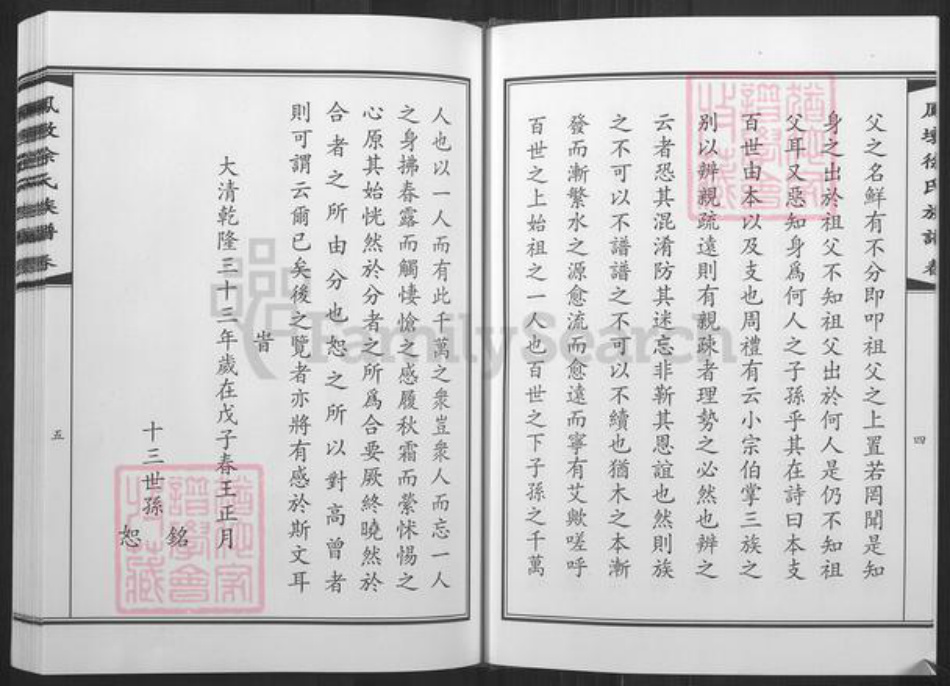 鳳墩徐氏族譜 卷
四
父之名鮮有不分即叩祖父之上置若罔聞是知
身之出於祖父不知祖父出於何人是仍不知祖
父耳又惡知身爲何人之子孫乎其在詩曰本支
百世由本以及支也周禮有云小宗伯掌三族之
別以辨親疏遠則有親疎者理勢之必然也辨之
云者恐其混淆防其迷忘非靳其恩誼也然則族
之不可以不譜譜之不可以不續也猶木之本漸
發而漸繁水之源愈流而愈遠而寧有艾歟嗟呼
百世之上始祖之一人也百世之下子孫之千萬
人也以一人而有此千萬之衆豈衆人而忘一人
之身拂春露而觸悽愴之感履秋霜而縈怵惕之
心原其始恍然於分者之所爲合要厥終曉然於
合者之所由分也恕之所以對高曾者
則可謂云爾已矣後之覽者亦將有感於斯文耳
旹
大清乾隆三十三年歲在戊子春王正月
十三世孫
銘
恕
鳳墩徐氏族譜 卷
五
FamilySearch